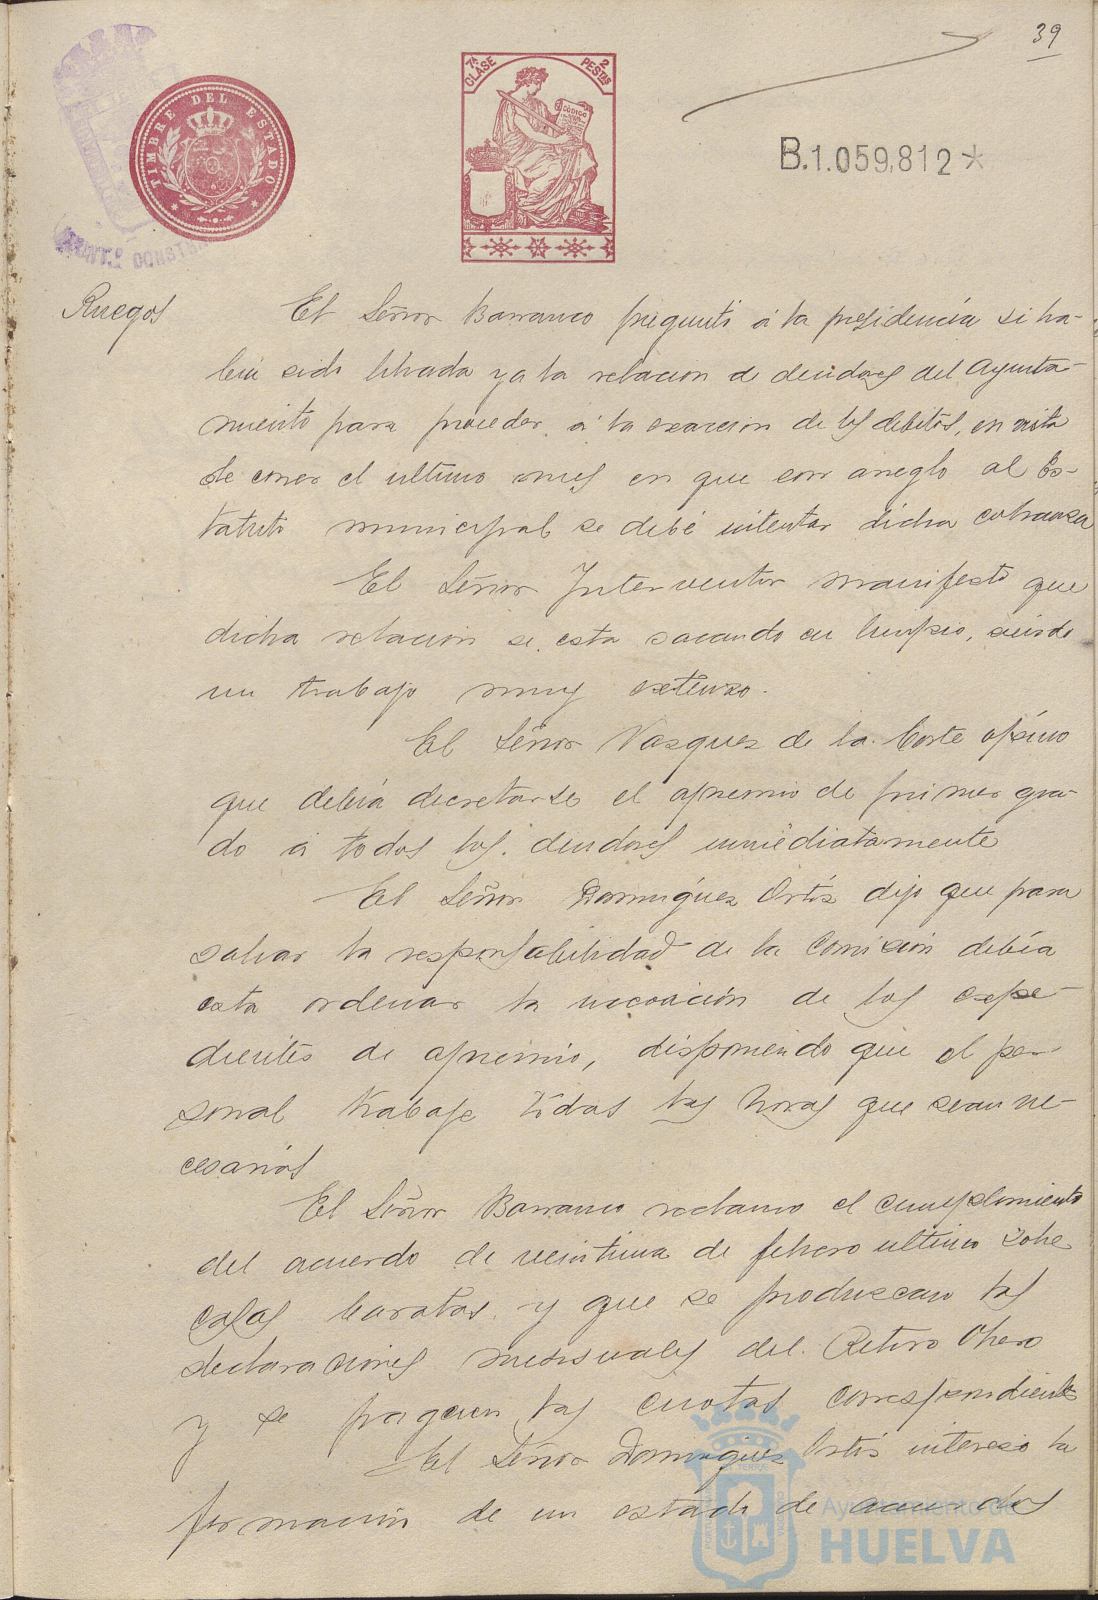 39
TIMBRE DEL ESTADO
7ª CLASE
2 PESTAS
CODIGO
B.1.059,812*
CONST
Ruegos
El Señor Barranco preguntó á la presidencia si ha-
bia sido librada ya la relacion de deudores del Ayunta-
miento para proceder á la exaccion de los debitos, en vista
de correr el ultimo mes en que con arreglo al Es-
tatuto municipal se debe intentar dicha cobranza
El Señor Interventor manifesto que
dicha relacion se esta sacando en limpio, siendo
un trabajo muy extenso.
El Señor Vazquez de la Corte opino
que debia decretarse el apremio de primer gra-
do á todos los deudores inmediatamente
El Señor Dominguez Ortis dijo que para
salvar la responsabilidad de la Comision debia
esta ordenar la incoación de los expe-
dientes de apremio, disponiendo que el per-
sonal trabaje todas las horas que sean ne-
cesarias
El Señor Barranco reclamo el cumplimiento
del acuerdo de veintiuno de febrero ultimo sobre
casas baratas y que se produzcan las
declaraciones mensuales del Retiro Obrero
y se paguen las cuotas correspondientes
El Señor Dominguez Ortis intereso la
formación de un estado de acuerdos
Ayuntamiento de
HUELVA